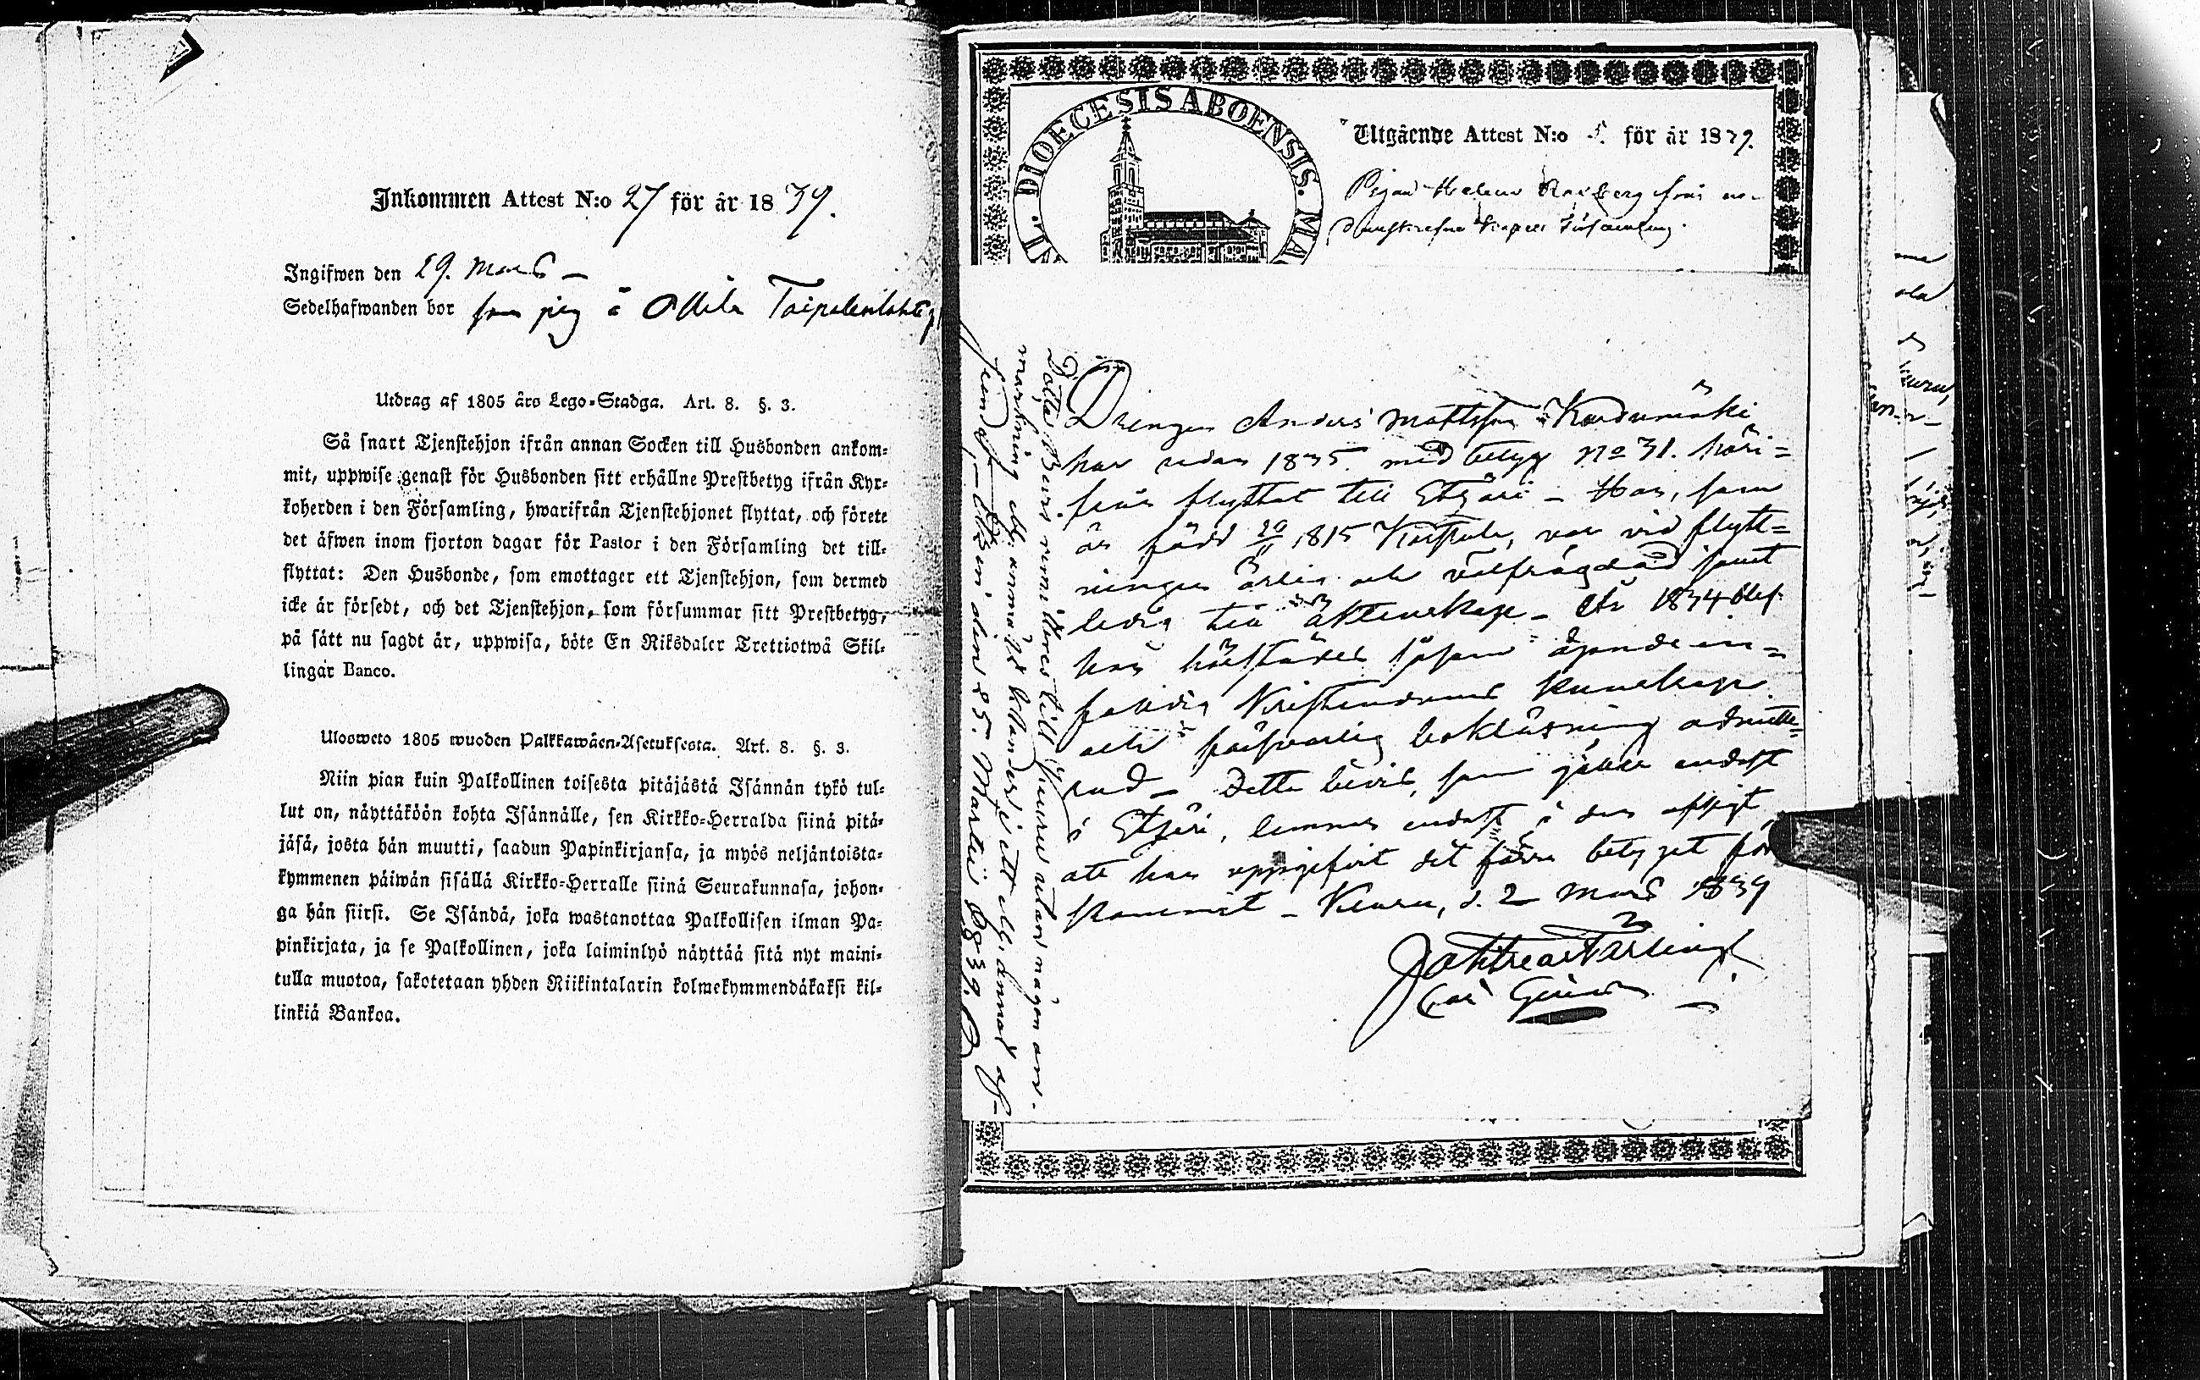 Inkommen Attest N:o 27 för år 1839.
Ingifwen den 29. Mars –
Sedelhafwanden bor som pig å Ollila Taipalenlahti
Utdrag af 1805 års Lego-Stadga. Art. 8. §. 3.
Så snart Tjenstehjon ifrån annan Socken till Husbonden ankom-
mit, uppwise genast för Husbonden sitt erhållne Prestbetyg ifrån Kyr-
koherden i den Församling, hwarifrån Tjenstehjonet flyttat, och förete
det äfwen inom fjorton dagar för Pastor i den Församling det till-
flyttat: Den Husbonde, som emottager ett Tjenstehjon, som dermed
icke är försedt, och det Tjenstehjon, som försummar sitt Prestbetyg,
på sätt nu sagdt är, uppwisa, böte En Riksdaler Trettiotwå Skil-
lingar Banco.
Ulosweto 1805 wuoden Palkkawäen-Asetuksesta. Art. 8. §. 3.
Niin pian kuin Palkollinen toisesta pitäjästä Isännän tykö tul-
lut on, näyttäköön kohta Isännälle, sen Kirkko-Herralda siinä pitä-
jäsä, josta hän muutti, saadun Papinkirjansa, ja myös neljäntoista-
kymmenen päiwän sisällä Kirkko-Herralle siinä Seurakunnasa, johon-
ga hän siirsi. Se Isändä, joka wastanottaa Palkollisen ilman Pa-
pinkirjata, ja se Palkollinen, joka laiminlyö näyttää sitä nyt maini-
tulla muotoa, sakotetaan yhden Riikintalarin kolmekymmendäkaksi kil-
linkiä Bankoa.
DIOECESIS ABOENSIS.
Utgående Attest N:o 5. för år 1839.
Pigan Helena från
Församling.
Detta Bevis remitteras till Keuru utan någon an-
märkning
den 25. Martii 1839.
Drengen Anders Mattsson
har sedan 1835 med betyg No 31. häri-
från flyttat till Etseri – Han, som
är född 20/11 1815 var vid flytt-
ningen ärlig och välfrägdad samt
ledig till äktenskap – År 1834 blef
han härstädes såsom ägande in-
fallig Kristendoms kunskap
och försvarlig bokläsning admitte-
rad – Detta bevis, som gäller endast
i Etseri, lemnas endast i den afsigt,
att han uppgifvit det förra betyget för-
kommit – Keuru, d. 2 Mars 1839